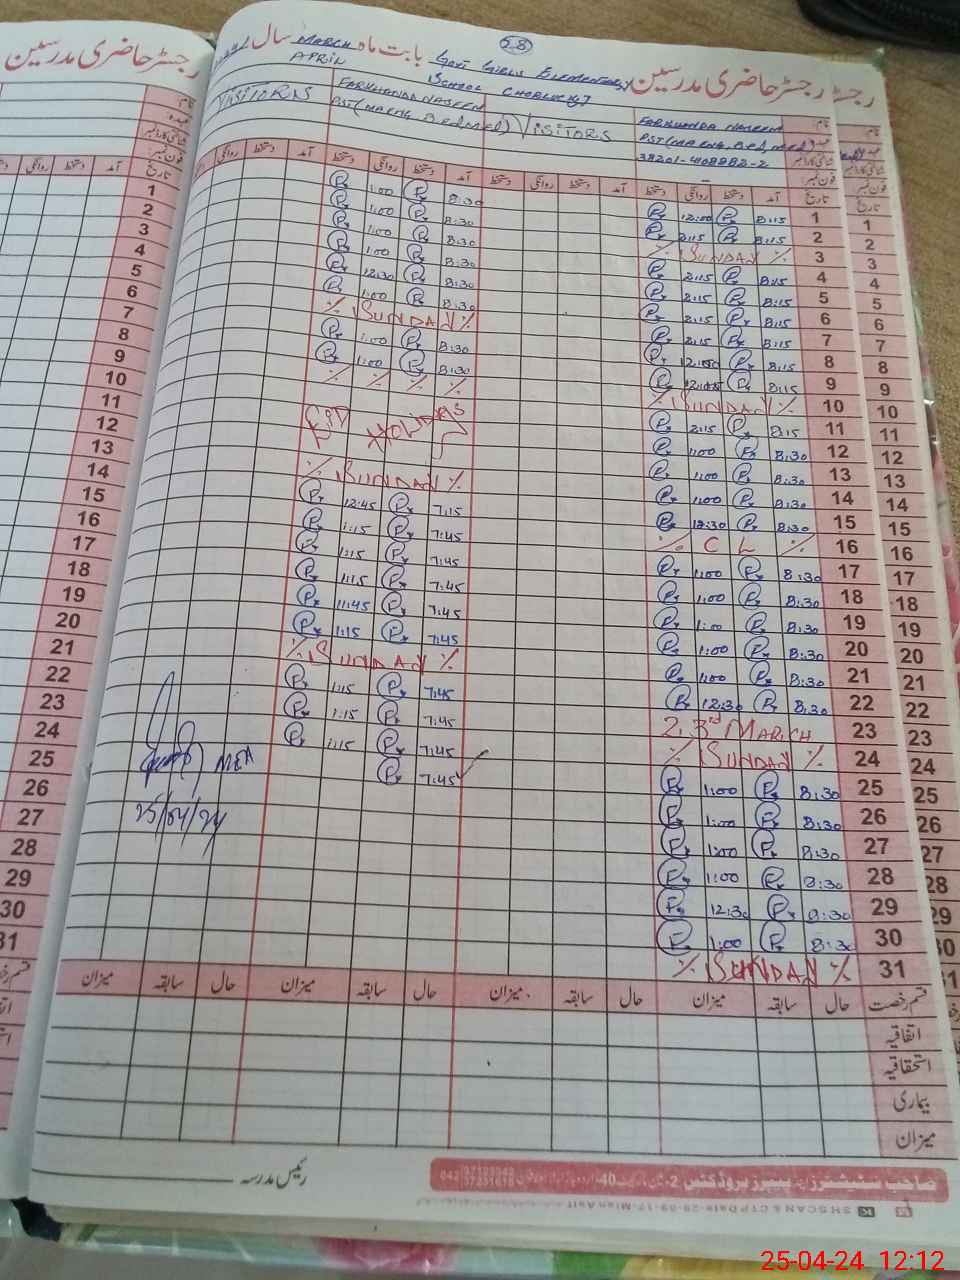 رجسٹر حاضری مدرسین
58
رجسٹر رجسٹر حاضری مدرسین
Govt Girls Elementary
School
بابت ماہ MARCH سال
APRIL
VISITORS
FARKHANDA NASEEM
PST (MA ENG, B.Ed, M.Ed)
VISITORS
FARKHANDA NASEEM
PST (MA ENG, B.Ed, M.Ed)
38201-408882-2
نام
عہدہ
شناختی کارڈ نمبر
فون نمبر
تاریخ
آمد دستخط روانگی دستخط آمد دستخط روانگی دستخط آمد دستخط روانگی دستخط
1 8:15 P 12:00 P
2 8:15 P 2:15 P
3 % SUNDAY %
4 8:15 P 2:15 P
5 8:15 P 2:15 P
6 8:15 P 2:15 P
7 8:15 P 2:15 P
8 8:15 P P
9 8:15 P P
10 % SUNDAY %
11 8:15 P 2:15 P
12 8:30 P 1:00 P
13 8:30 P 1:00 P
14 8:30 P 1:00 P
15 8:30 P 12:30 P
16 % C L %
17 8:30 P 1:00 P
18 8:30 P 1:00 P
19 8:30 P 1:00 P
20 8:30 P 1:00 P
21 8:30 P 1:00 P
22 8:30 P 12:30 P
23 23rd MARCH
24 % SUNDAY %
25 8:30 P 1:00 P
26 8:30 P 1:00 P
27 8:30 P 1:00 P
28 8:30 P 1:00 P
29 8:30 P 12:30 P
30 8:30 P 1:00 P
31 % SUNDAY %
8:30 P 1:00 P
8:30 P 1:00 P
8:30 P 1:00 P
8:30 P 1:00 P
8:30 P 12:30 P
8:30 P 1:00 P
% SUNDAY %
8:30 P 1:00 P
8:30 P 1:00 P
% % % %
EID HOLIDAYS
% SUNDAY %
7:15 P 12:45 P
7:45 P 1:15 P
7:45 P 1:15 P
7:45 P 1:15 P
7:45 P 11:45 P
7:45 P 1:15 P
% SUNDAY %
7:45 P 1:15 P
7:45 P 1:15 P
7:45 P 1:15 P
7:45 P
MEA
25/04/24
قسم رخصت حال سابقہ میزان حال سابقہ میزان حال سابقہ میزان حال سابقہ میزان
اتفاقیہ
استحقاقیہ
بیماری
میزان
رئیس مدرسہ
صاحب سٹیشنرز اینڈ پیپرز پروڈکٹس
25-04-24 12:12